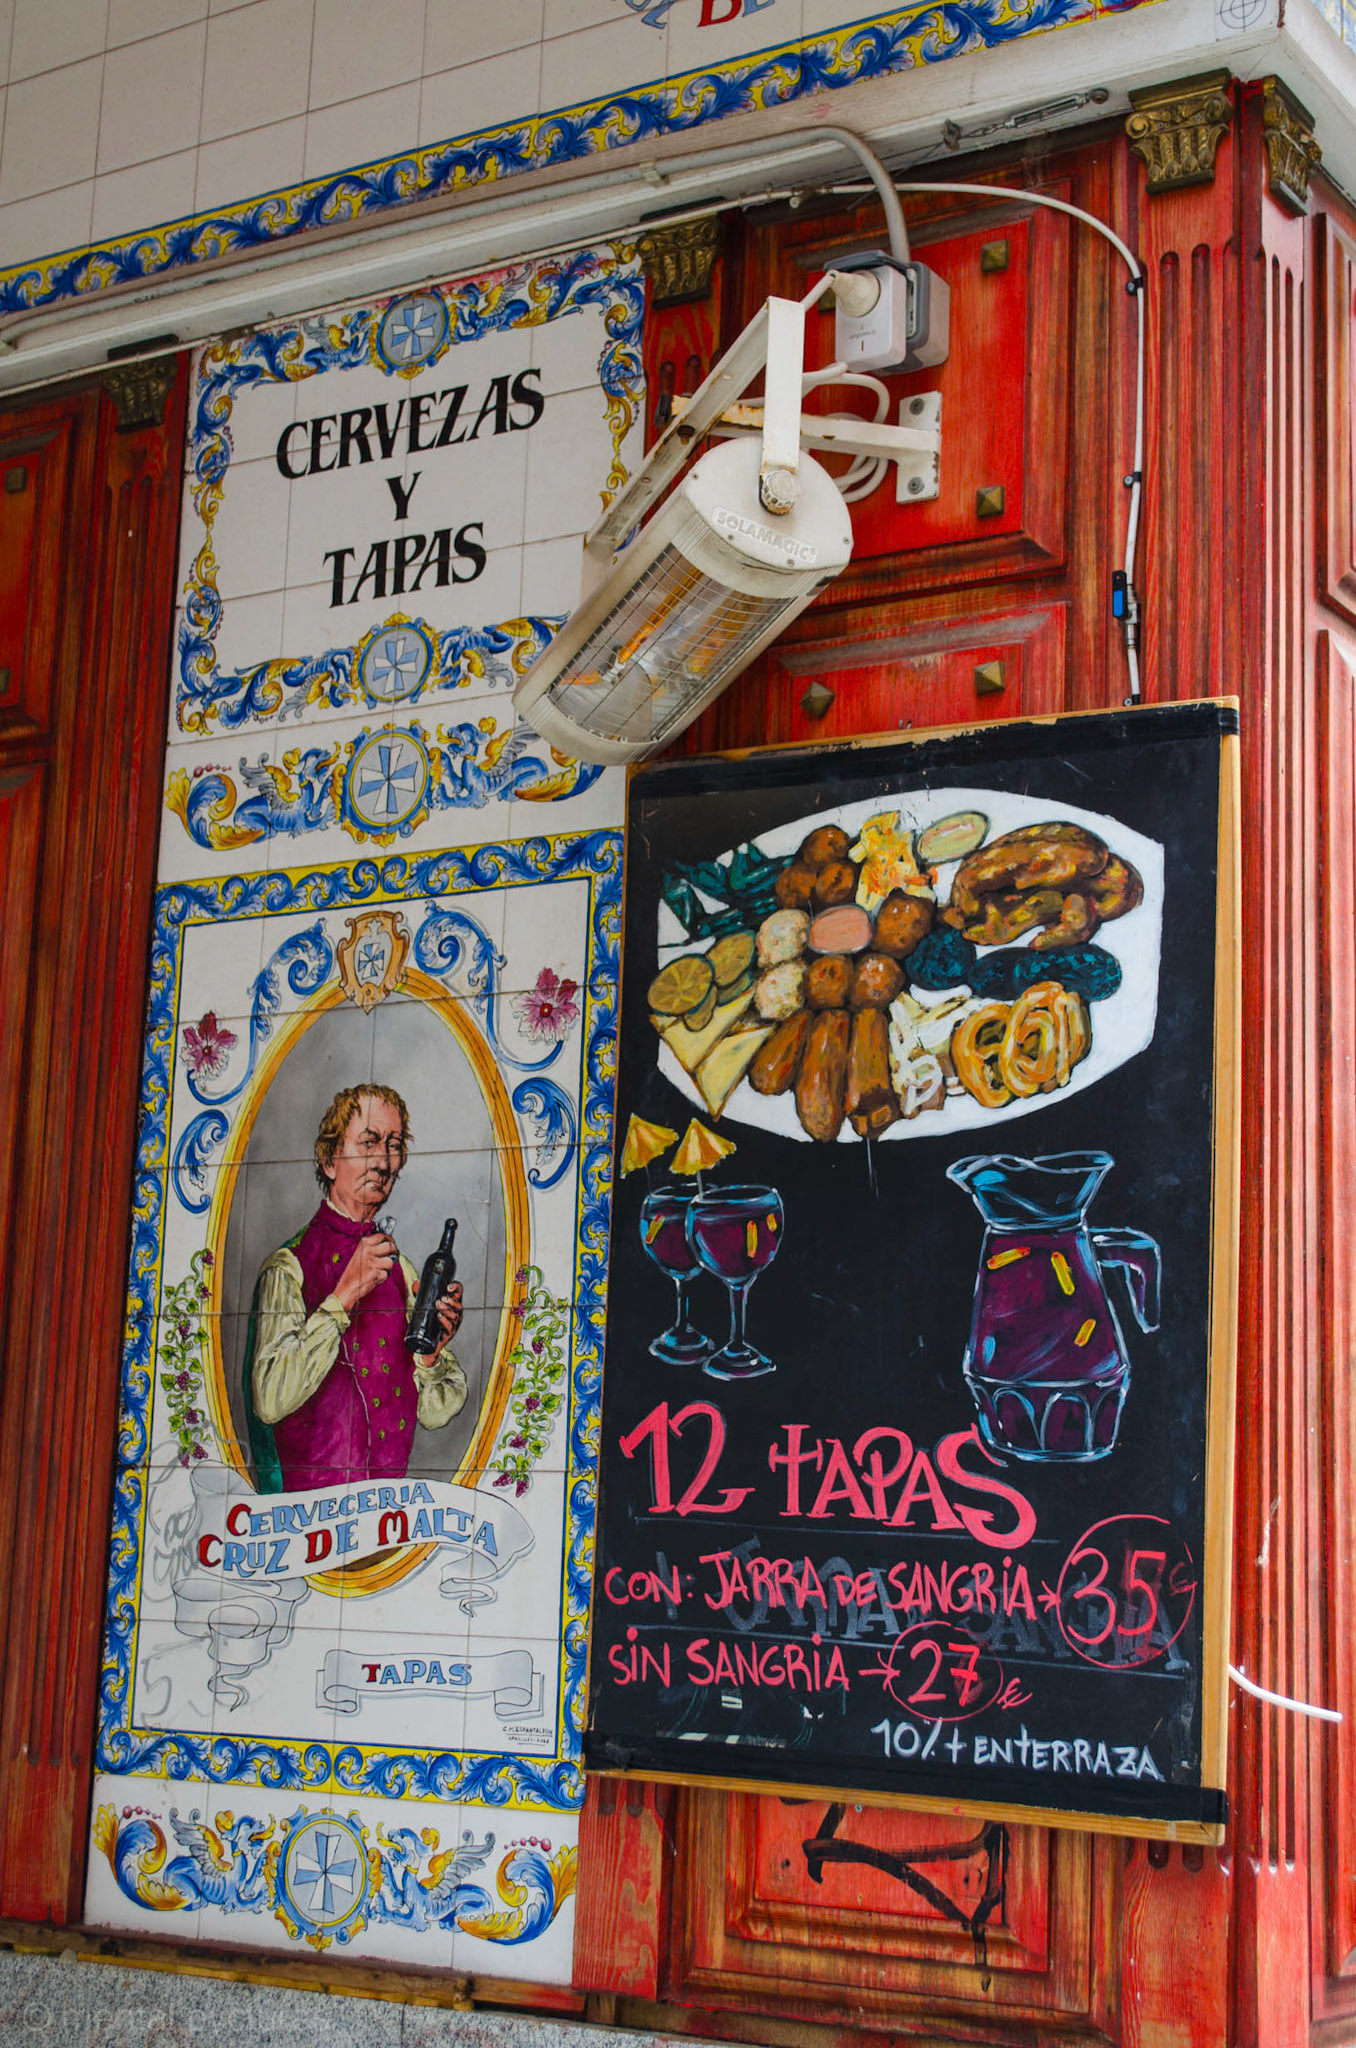 DE
CERVEZAS
Y
TAPAS
SOLAMAGIC
CERVECERIA
CRUZ DE MALTA
TAPAS
12 TAPAS
CON: JARRA DE SANGRIA → 35 €
SIN SANGRIA → 27 €
10% + EN TERRAZA